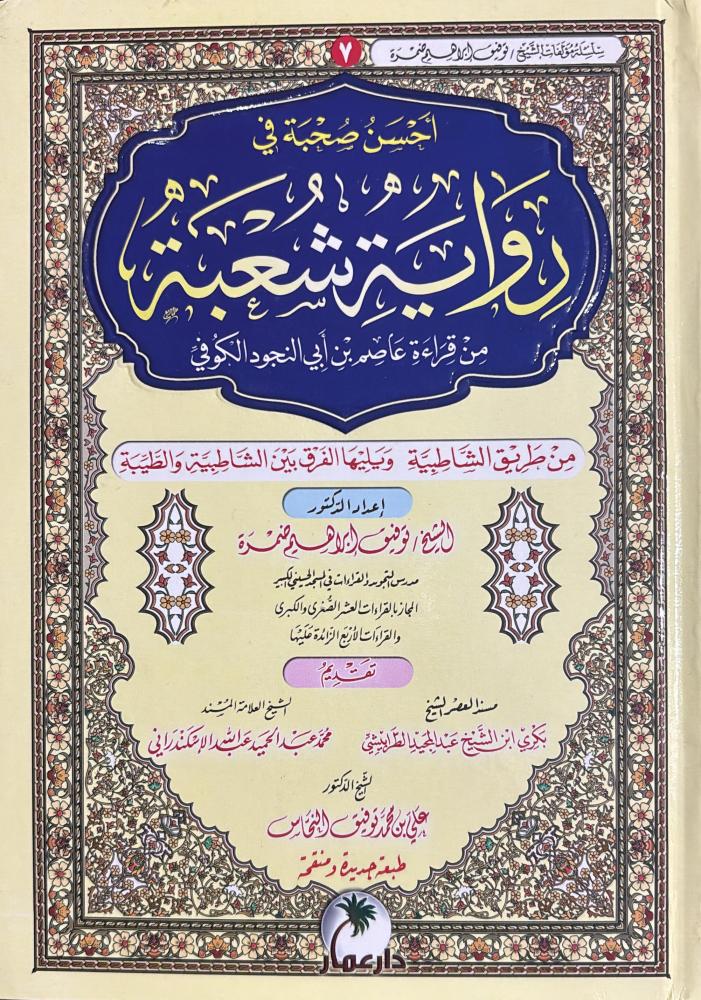 سلسلة مؤلفات الشيخ / توفيق إبراهيم ضمرة ٧
أَحْسَنُ صُحْبَة في
رِوَايَةِ شُعْبَةَ
مِنْ قِرَاءَةِ عَاصِمِ بْنِ أَبِي النجود الكوفي
مِنْ طَرِيْقِ الشَّاطِبِيَّةِ وَيَليْهَا الفَرْق بَيْنَ الشَّاطِبِيَّةِ وَالطَّيِّبَة
إعداد الدكتور
الشيخ / توفيق إبراهيم ضمرة
مدرس التجويد والقراءات في المسجد الحسيني الكبير
المجاز بالقراءات العشر الصُّغرى والكبرى
والقراءات الأربع الزائدة عليها
تقديمُ
مسند العصر الشيخ
بكري ابن الشَّيخ عبد المجيد الطرابيشي
الشيخ العلامة المُسْند
محمد عبد الحميد عبد الله الإسكندراني
الشيخ الدكتور
علي بن محمد توفيق النحَّاس
طبعة جديدة ومنقحة
دار عمار